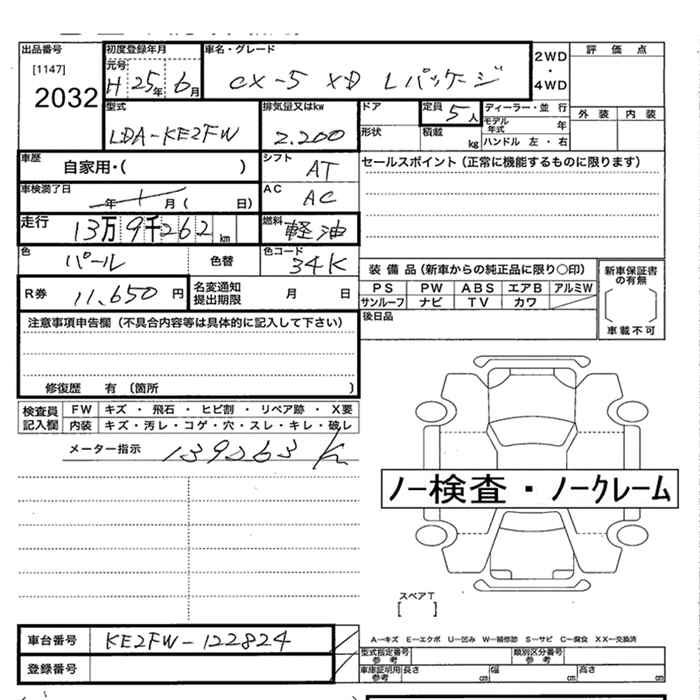 出品番号 初度登録年月 車名・グレード 2WD・4WD 評価点
[1147] 元号
2032 H 25年 6月 CX-5 XD Lパッケージ
型式 排気量又はkw ドア 定員 5人 ディーラー・並行 外装 内装
LDA-KE2FW 2.200 形状 積載 kg モデル年式 年
ハンドル 左・右
車歴 自家用・( ) シフト AT セールスポイント(正常に機能するものに限ります)
車検満了日 年 月( 日) AC AC
走行 13万9千262km 燃料 軽油
色 パール 色替 色コード 34K 装備品(新車からの純正品に限り○印) 新車保証書の有無
R券 11,650円 名変通知提出期限 月 日 PS PW ABS エアB アルミW
サンルーフ ナビ TV カワ
車載不可
注意事項申告欄(不具合内容等は具体的に記入して下さい) 後日品
修復歴 有 (箇所 )
検査員記入欄 FW キズ・飛石・ヒビ割・リペア跡・X要
内装 キズ・汚レ・コゲ・穴・スレ・キレ・破レ
メーター指示 139263 K
ノー検査・ノークレーム
スペアT
[ ]
車台番号 KE2FW-122824 A―キズ E―エクボ U―凹み W―補修跡 S―サビ C―腐食 XX―交換済
登録番号 型式指定番号 参考 類別区分番号 参考
車庫証明用 参考 長さ cm 幅 cm 高さ cm